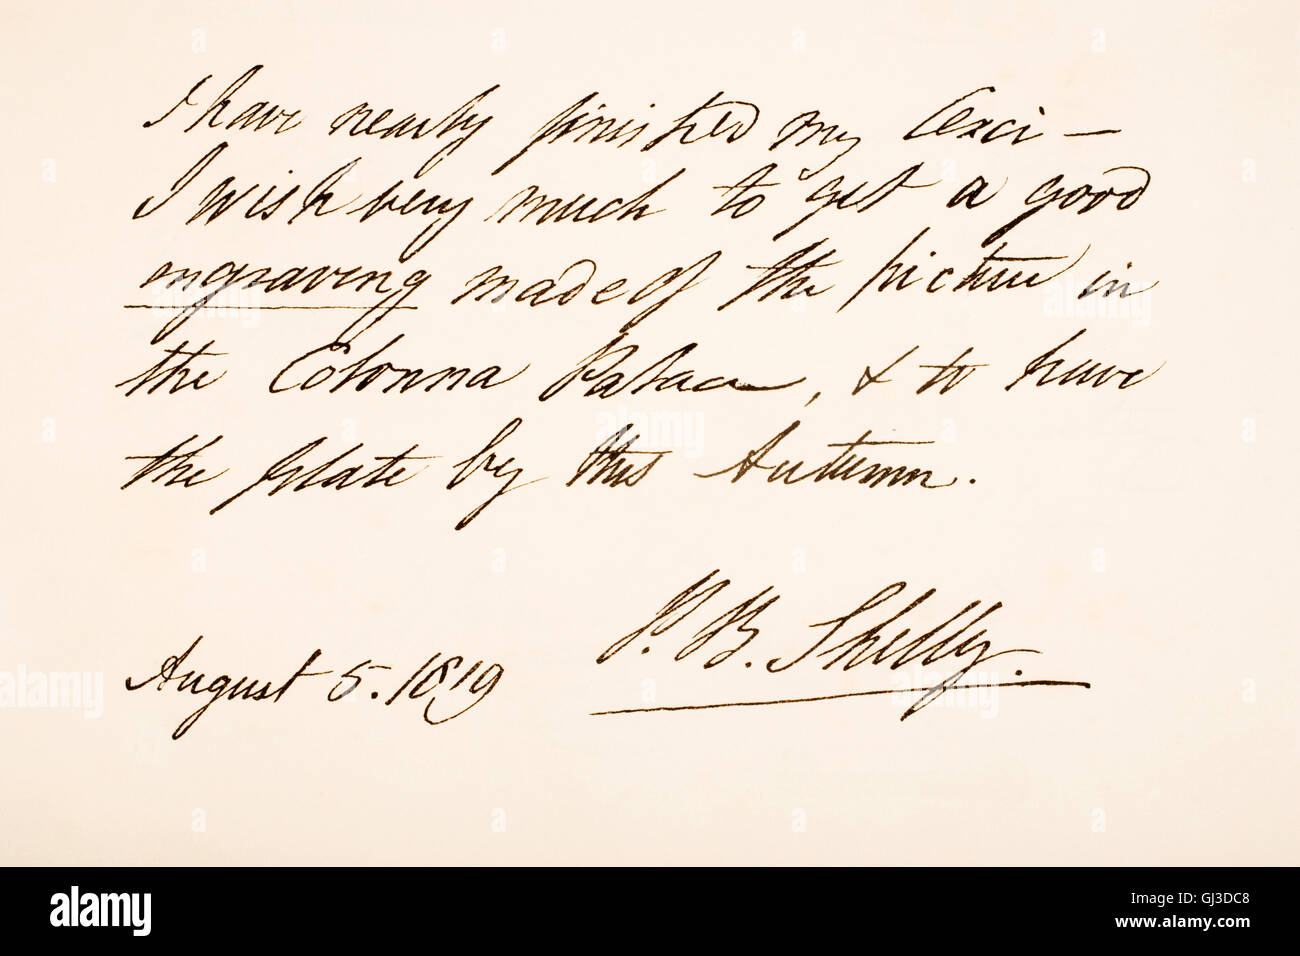 I have nearly finished my Cenci —
I wish very much to get a good
engraving made of the picture in
the Colonna Palace, & to have
the plate by this Autumn.
P. B. Shelley.
August 5. 1819
alamy
Image ID: GJ3DC8
www.alamy.com